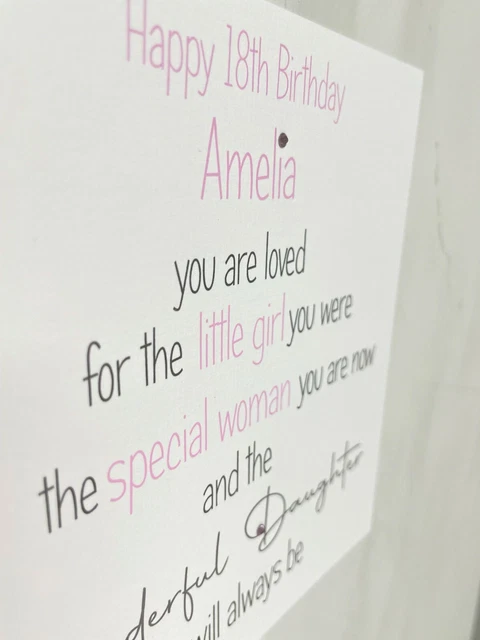 Happy 18th Birthday
Amelia
you are loved
for the little girl you were
the special woman you are now
and the
derful Daughter
will always be